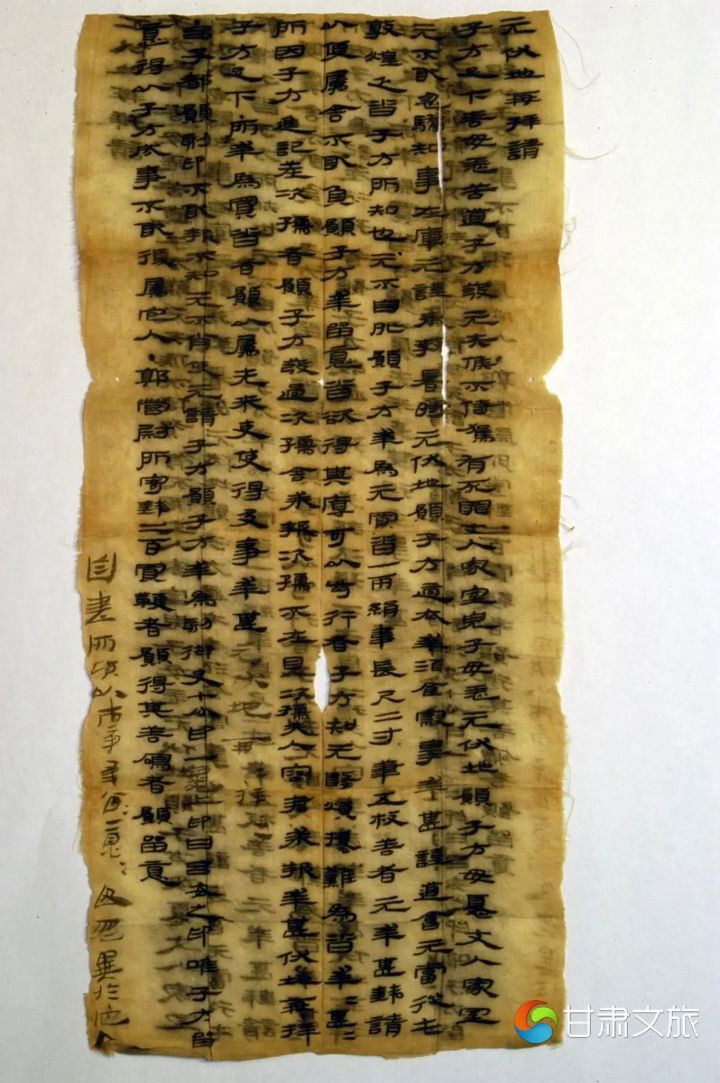 元伏地再拜請
子方足下善毋恙苦道子方發元失候不侍駕有死罪丈人家室兒子毋恙元伏地願子方毋憂丈人家室
元不敢忽驕知事在庫元謹奉教暑時元伏地願子方適衣幸酒食察事幸甚謹道會元當從屯
敦煌乏沓子方所知也元不自外願子方幸為元買沓一兩絹韋長尺二寸筆五枚善者元幸甚錢請
以便屬舍不敢負願子方幸留意沓欲得其厚可以步行者子方知元數煩擾難為沓幸=甚=
所因子方進記差次孺者願子方發過次孺舍求報次孺不在見次孺夫人容君求報幸甚伏地再拜
子方足下所幸為買沓者願以屬先來吏使得及事幸甚元伏地再拜再拜
呂子都願刻印不敢報不知元不肖使元請子方願子方幸為刻御史七分印一龜上印曰呂安之印唯子方留
意得以子方成事不敢復屬它人·郭營尉所寄錢二百買鞭者願得其善鳴者願留意
自書所願以市事幸留意=毋忽異於它人
甘肃文旅